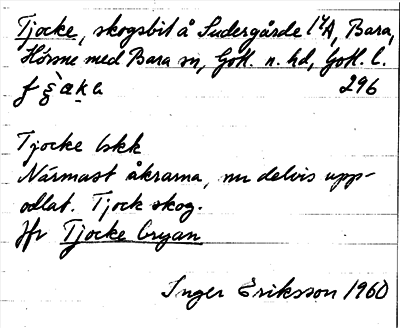 Tjocke, skogsbit å Sudergårde 1⁴A, Bara,
Hörsne med Bara sn, Gotl. n. hd, Gotl. l.
296
Tjocke bskk
Närmast åkrarna, nu delvis upp-
odlat. Tjock skog.
Jfr Tjocke bryan
Inger Eriksson 1960